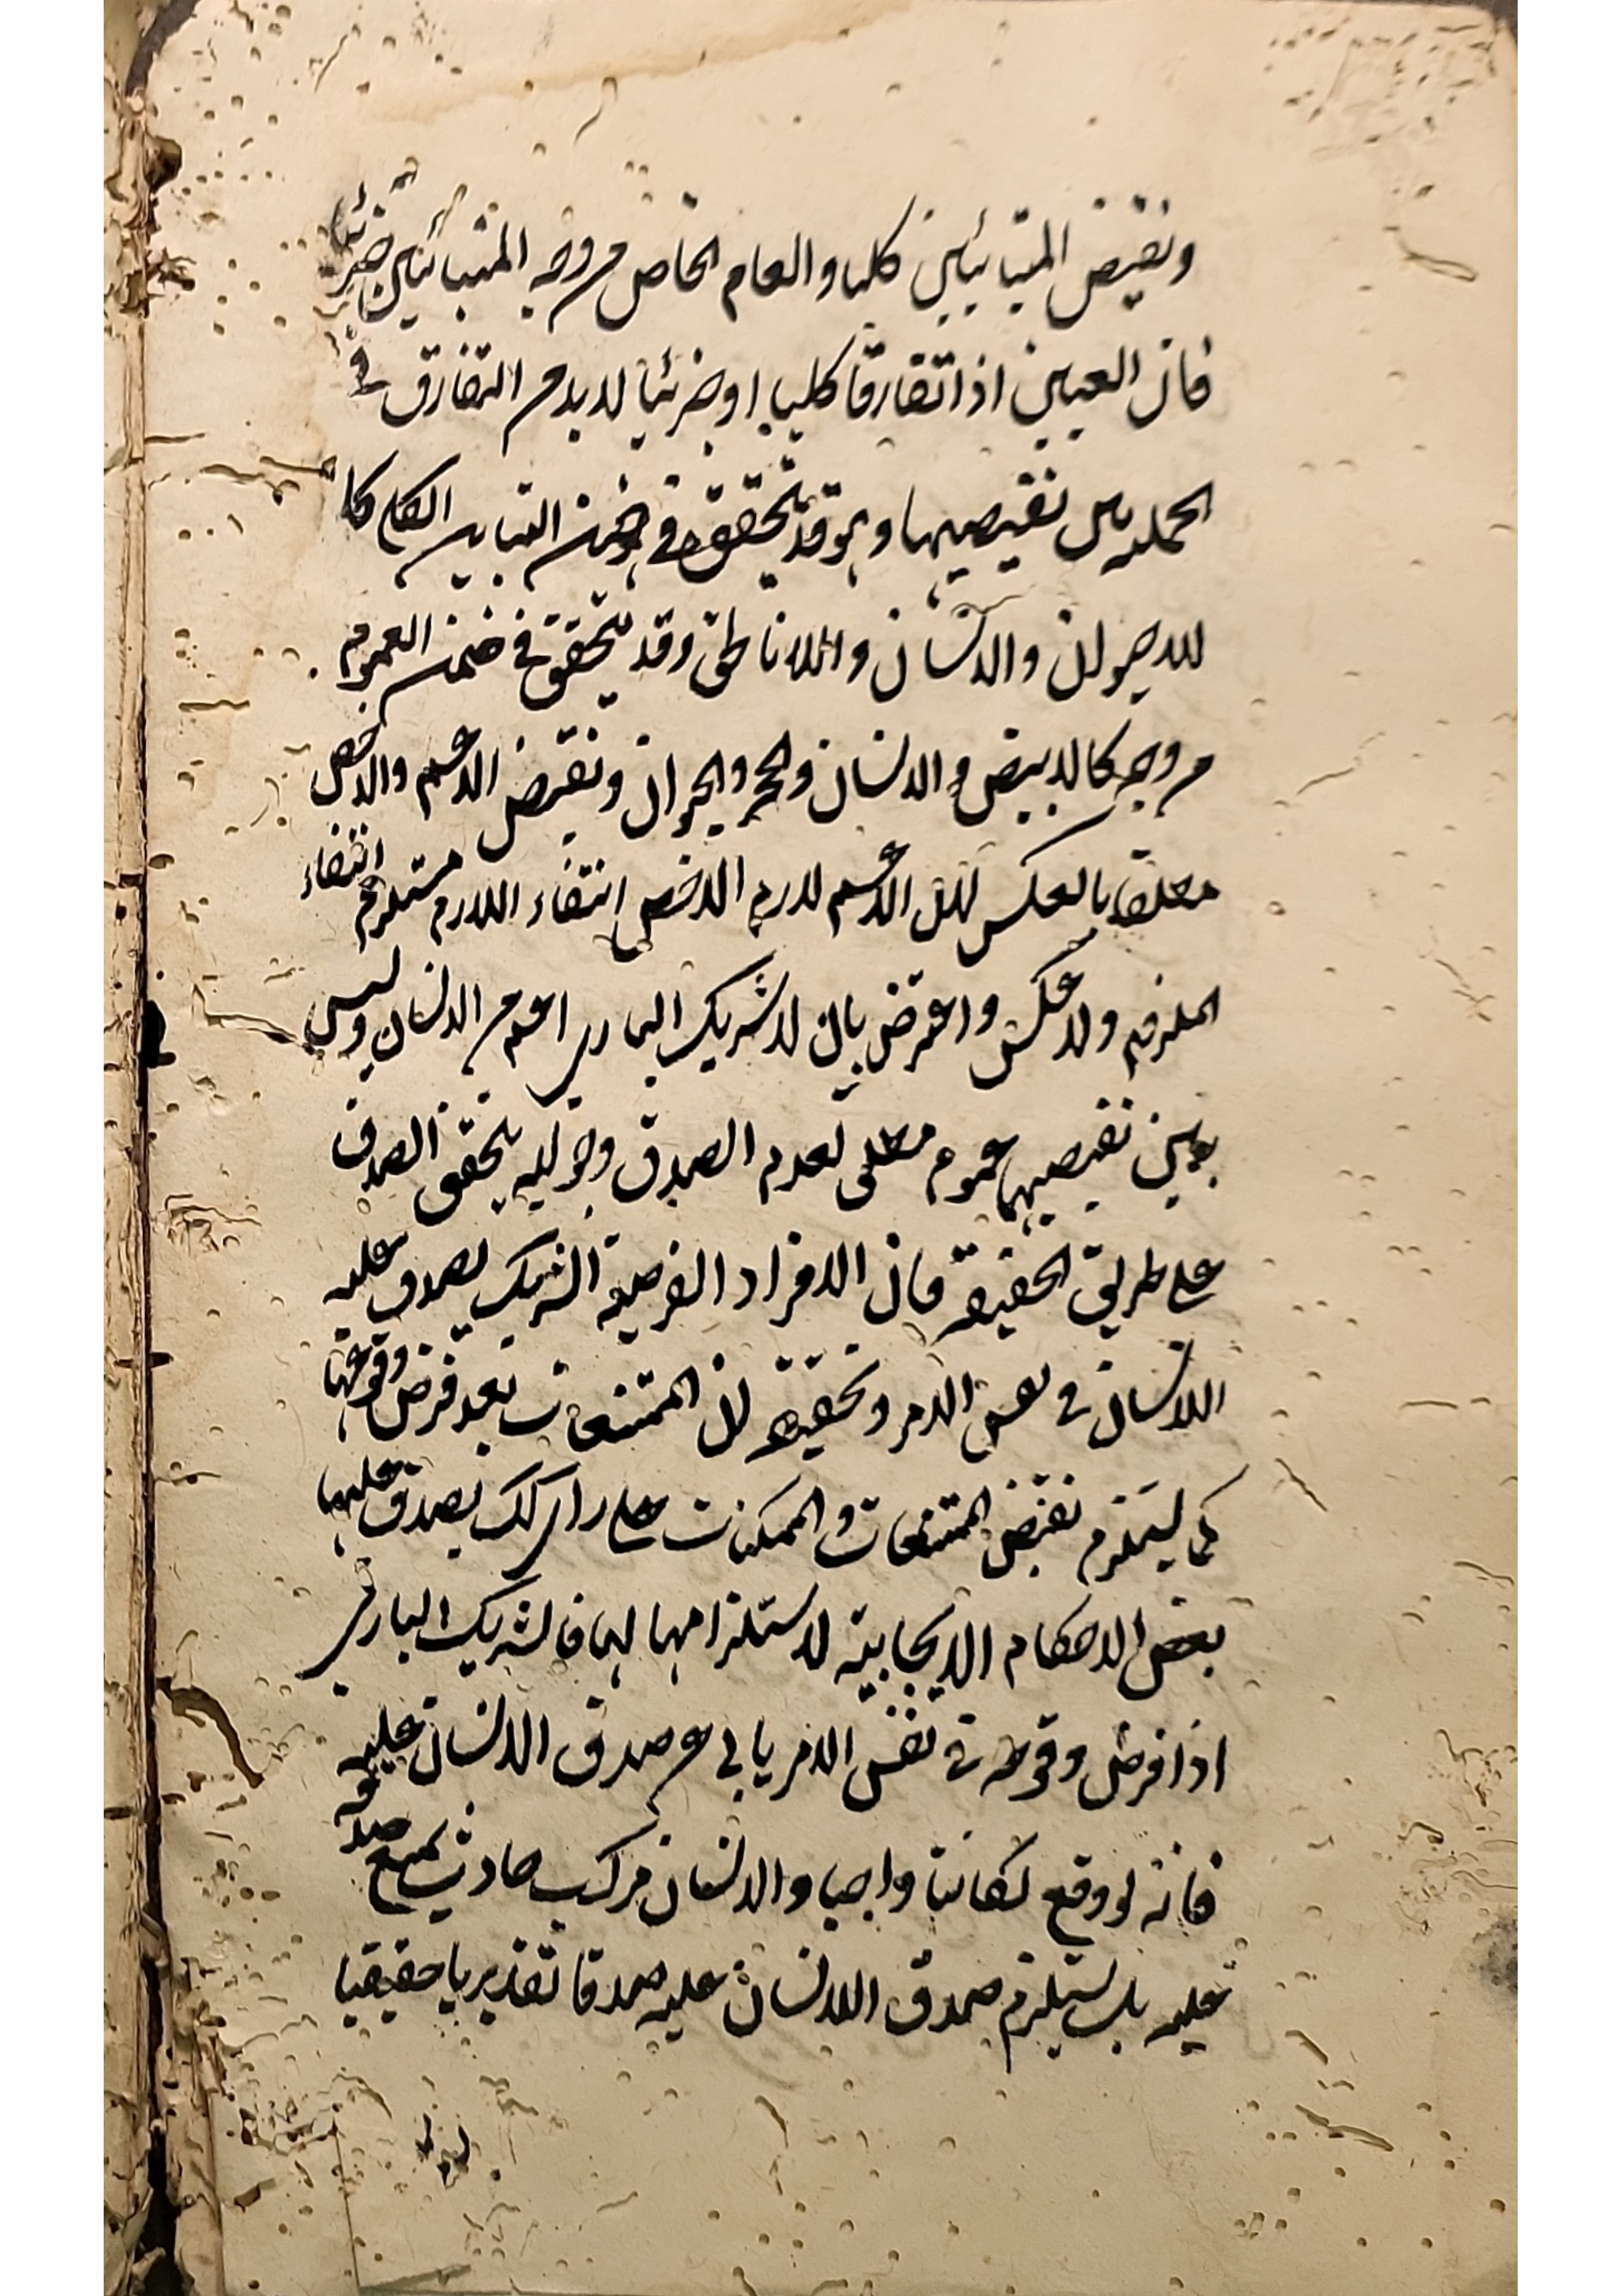 ونقيض المتبائنين كليا والعام الخاص من وجه المتبائنين جزئيا
فان العينين اذا تفارقا كليا او جزئيا لابد من التفارق في
الجملة بين نقيضيهما وهو قد يتحقق في ضمن التباين الكلي كما
للاحيوان والانسان واللاناطق وقد يتحقق في ضمن العموم
من وجه كالابيض والانسان والحجر والحيوان ونقيض الاعم والاخص
مطلقا بالعكس لان الاعم لازم الاخص انتفاء اللازم مستلزم انتفاء
الملزوم ولا عكس واعترض بان لا شريك الباري اعم من الانسان وليس
بين نقيضيهما عموم مطلق لعدم الصدق وجوابه يتحقق الصدق
على طريق الحقيقة فان الافراد الفرضية الشريك يصدق عليه
اللانسان في نفس الامر وتحقيقه ان الممتنعات بعد فرض وقوعها
كما يستلزم نقيض الممتنعات والممكنات على راي لك يصدق عليها
بعض الاحكام الايجابية لاستلزامها لها فالشريك الباري
اذا فرض وقوعه في نفس الامر يابى عن صدق الانسان عليه
فانه لو وقع لكان واجبا والانسان مركب حادث يمتنع صدقه
عليه بل يستلزم صدق اللانسان عليه صدقا تقديريا حقيقيا